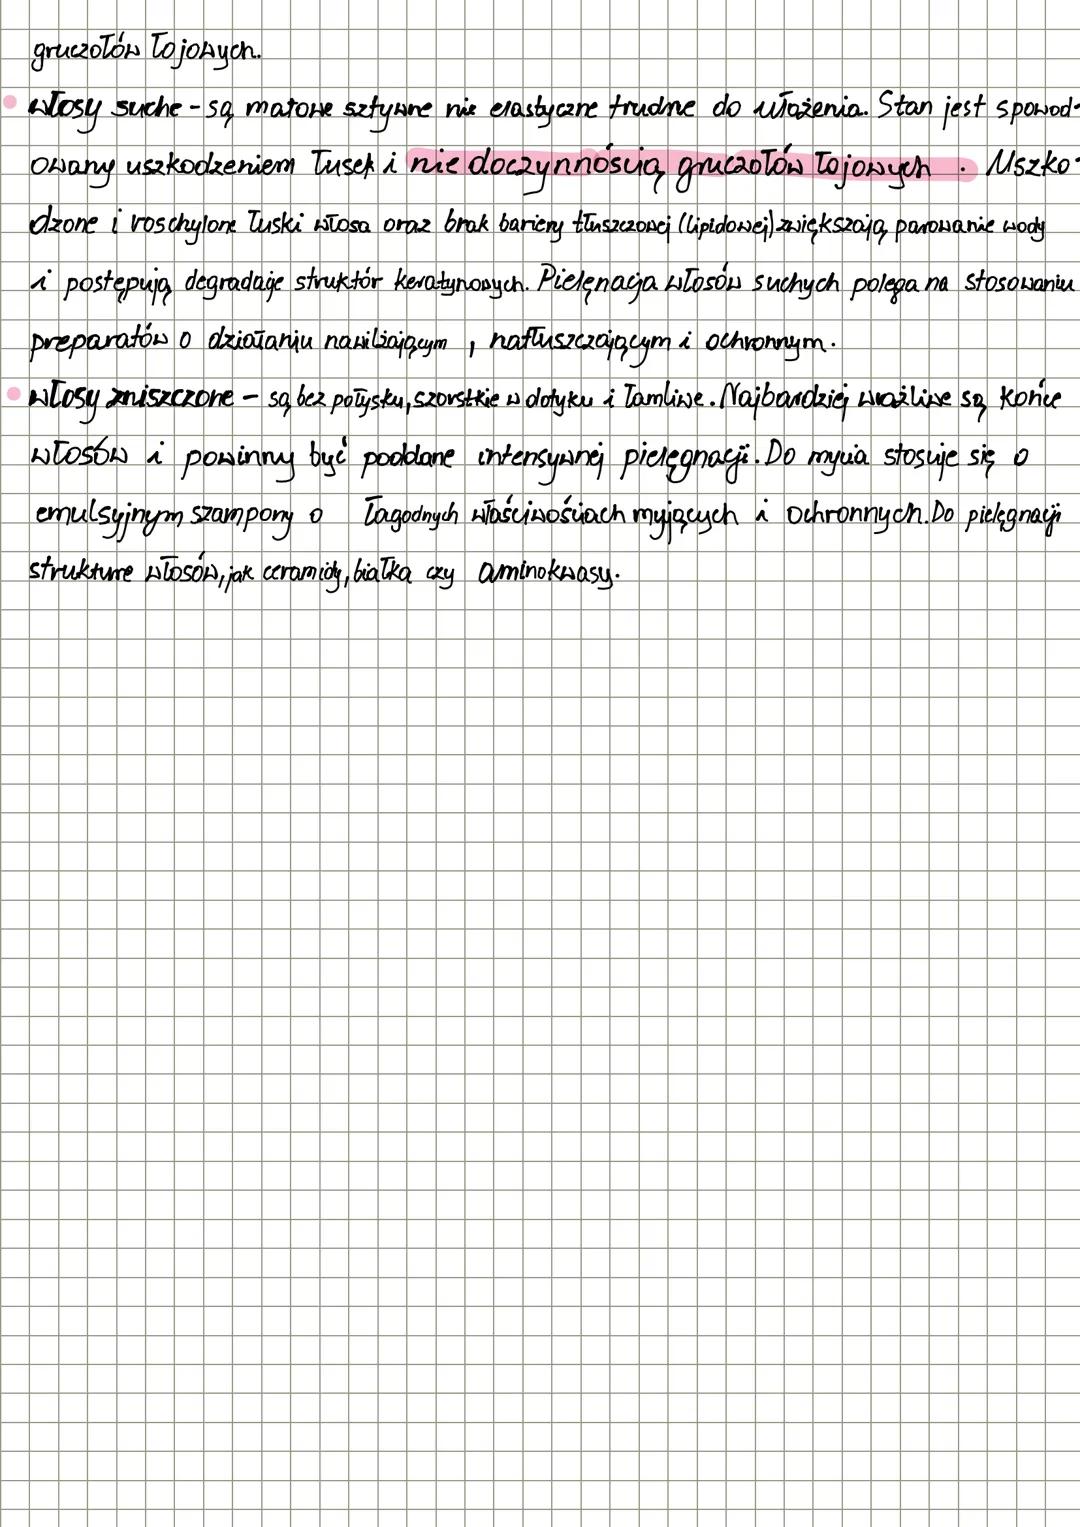 gruczołów łojowych.
włosy suche - są matowe sztywne nie elastyczne trudne do ułożenia. Stan jest spowod-
owany uszkodzeniem łusek i nie doczynnością gruczołów łojowych. Uszko-
dzone i roschylone łuski włosa oraz brak bariery tłuszczowej (lipidowej) zwiększają parowanie wody
i postępują degradaje struktór keratynowych. Pielęnacja włosów suchych polega na stosowaniu
preparatów o działaniu nawilżającym, natłuszczającym i ochronnym.
włosy zniszczone - są bez połysku, szorstkie w dotyku i łamliwe. Najbardziej wrażliwe są końce
włosów i powinny być poddane intensywnej pielęgnacji. Do mycia stosuje się o
emulsyjnym szampony o łagodnych właściwościach myjących i ochronnych. Do pielęgnacji
strukturre włosów, jak ceramidy, białka czy aminokwasy.